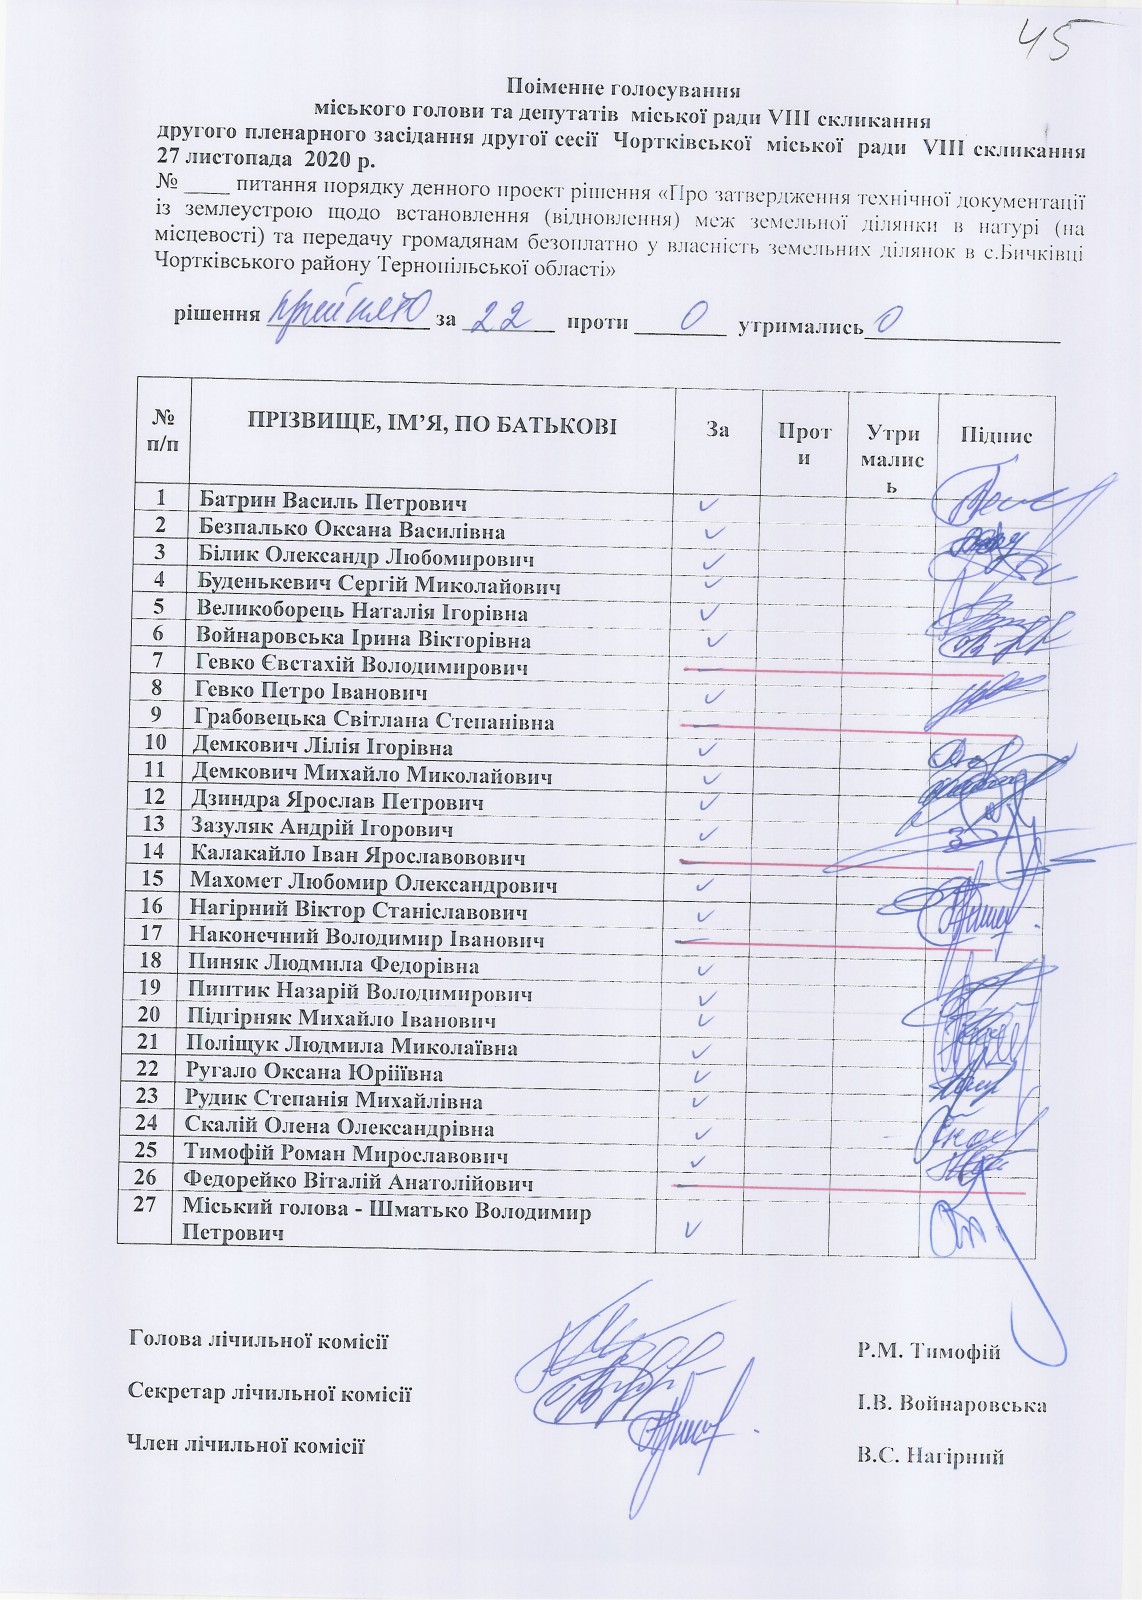 45
Поіменне голосування
міського голови та депутатів міської ради VIII скликання
другого пленарного засідання другої сесії Чортківської міської ради VIII скликання
27 листопада 2020 р.
№ ____ питання порядку денного проект рішення «Про затвердження технічної документації
із землеустрою щодо встановлення (відновлення) меж земельної ділянки в натурі (на
місцевості) та передачу громадянам безоплатно у власність земельних ділянок в с.Бичківці
Чортківського району Тернопільської області»
рішення прийнято за 22 проти 0 утримались 0
№ п/п ПРІЗВИЩЕ, ІМ’Я, ПО БАТЬКОВІ За Проти Утримались Підпис
1 Батрин Василь Петрович ✓
2 Безпалько Оксана Василівна ✓
3 Білик Олександр Любомирович ✓
4 Буденькевич Сергій Миколайович ✓
5 Великоборець Наталія Ігорівна ✓
6 Войнаровська Ірина Вікторівна ✓
7 Гевко Євстахій Володимирович –
8 Гевко Петро Іванович ✓
9 Грабовецька Світлана Степанівна –
10 Демкович Лілія Ігорівна ✓
11 Демкович Михайло Миколайович ✓
12 Дзиндра Ярослав Петрович ✓
13 Зазуляк Андрій Ігорович ✓
14 Калакайло Іван Ярославовович –
15 Махомет Любомир Олександрович ✓
16 Нагірний Віктор Станіславович ✓
17 Наконечний Володимир Іванович –
18 Пиняк Людмила Федорівна ✓
19 Пиптик Назарій Володимирович ✓
20 Підгірняк Михайло Іванович ✓
21 Поліщук Людмила Миколаївна ✓
22 Ругало Оксана Юріїївна ✓
23 Рудик Степанія Михайлівна ✓
24 Скалій Олена Олександрівна ✓
25 Тимофій Роман Мирославович ✓
26 Федорейко Віталій Анатолійович –
27 Міський голова - Шматько Володимир
Петрович ✓
Голова лічильної комісії Р.М. Тимофій
Секретар лічильної комісії І.В. Войнаровська
Член лічильної комісії В.С. Нагірний